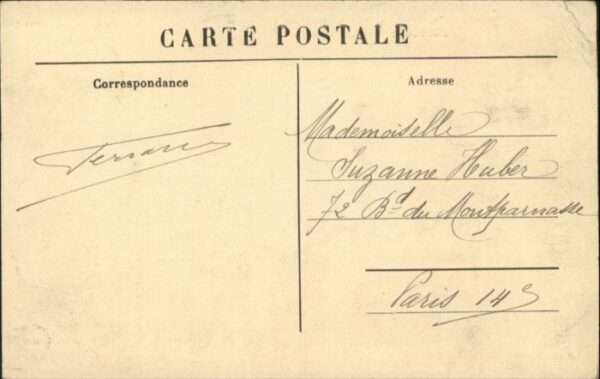 CARTE POSTALE
Correspondance
Adresse
Mademoiselle
Suzanne Huber
72 Bd du Montparnasse
Paris 14e